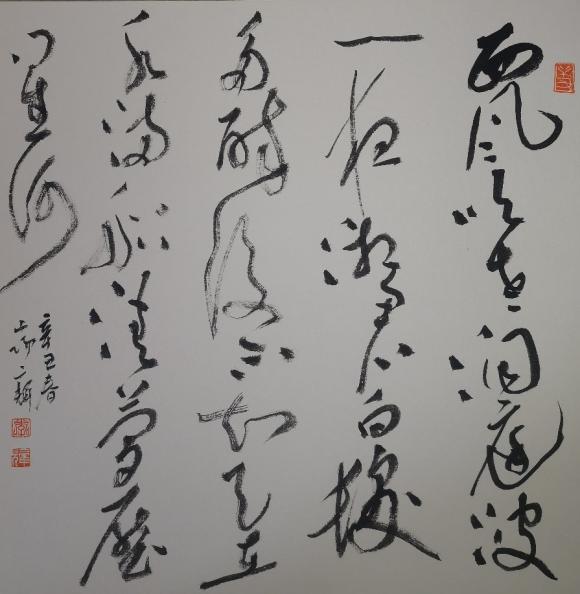 西風吹老洞庭波
一夜湘君白髮
多醉後不知天在
水滿船清夢壓
星河
辛丑春